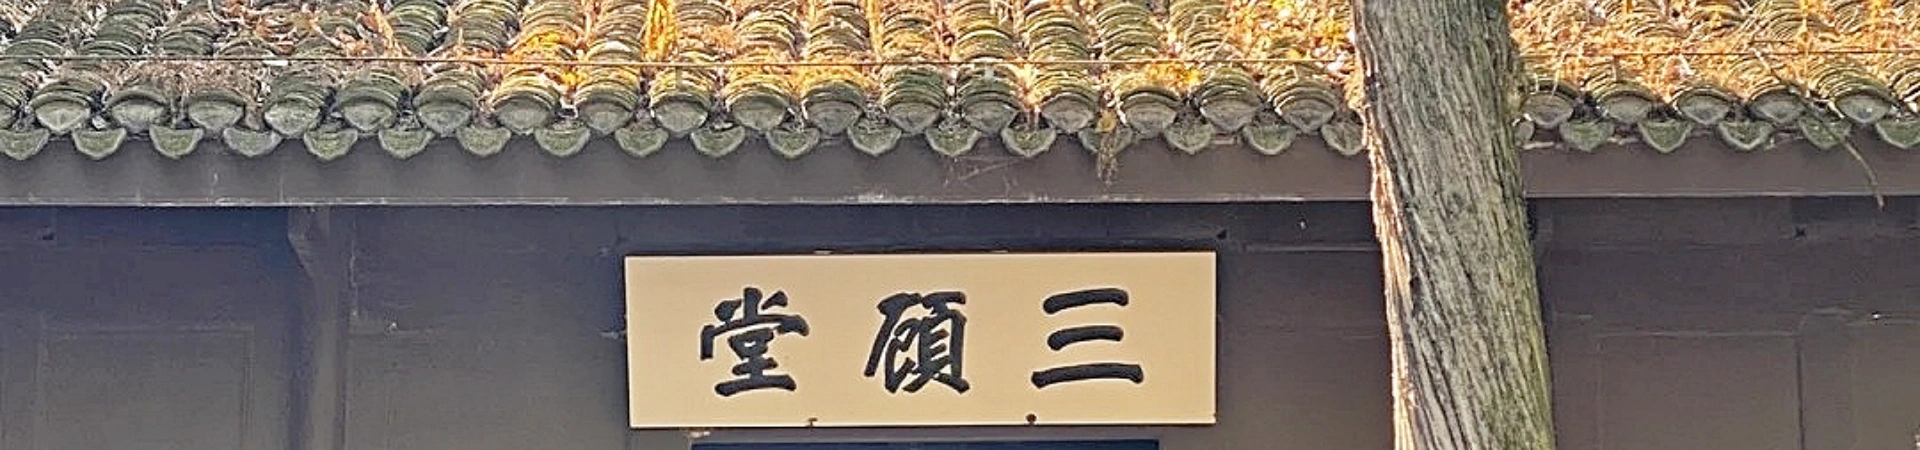 三顧堂